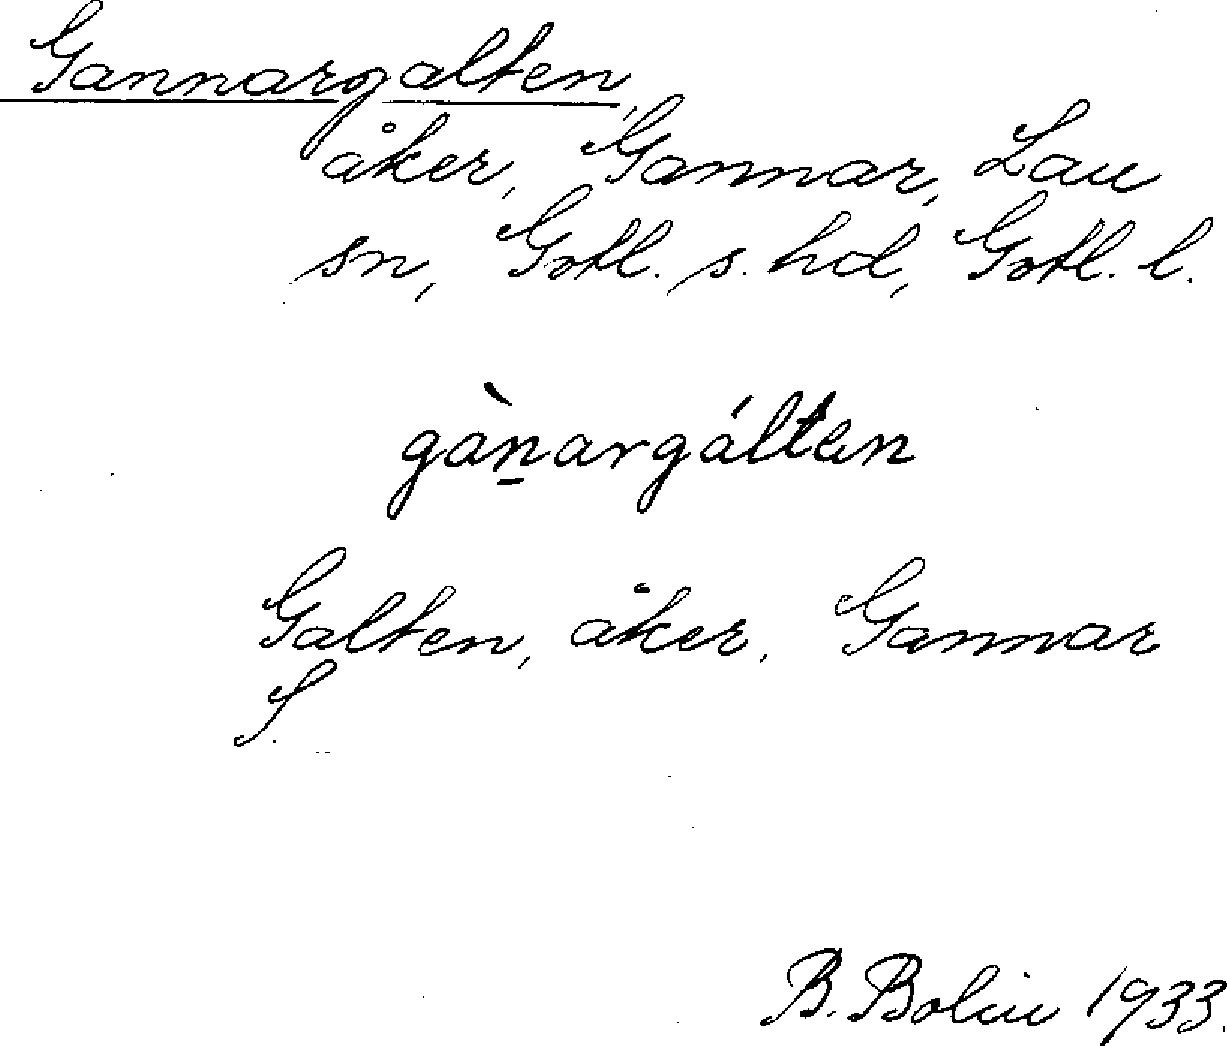 Gannargalten,
åker, Gannar, Lau
sn, Gotl. s. hd, Gotl. l.
gàn̲argálten
Galten, åker, Gannar
S.
B. Bolin 1933.